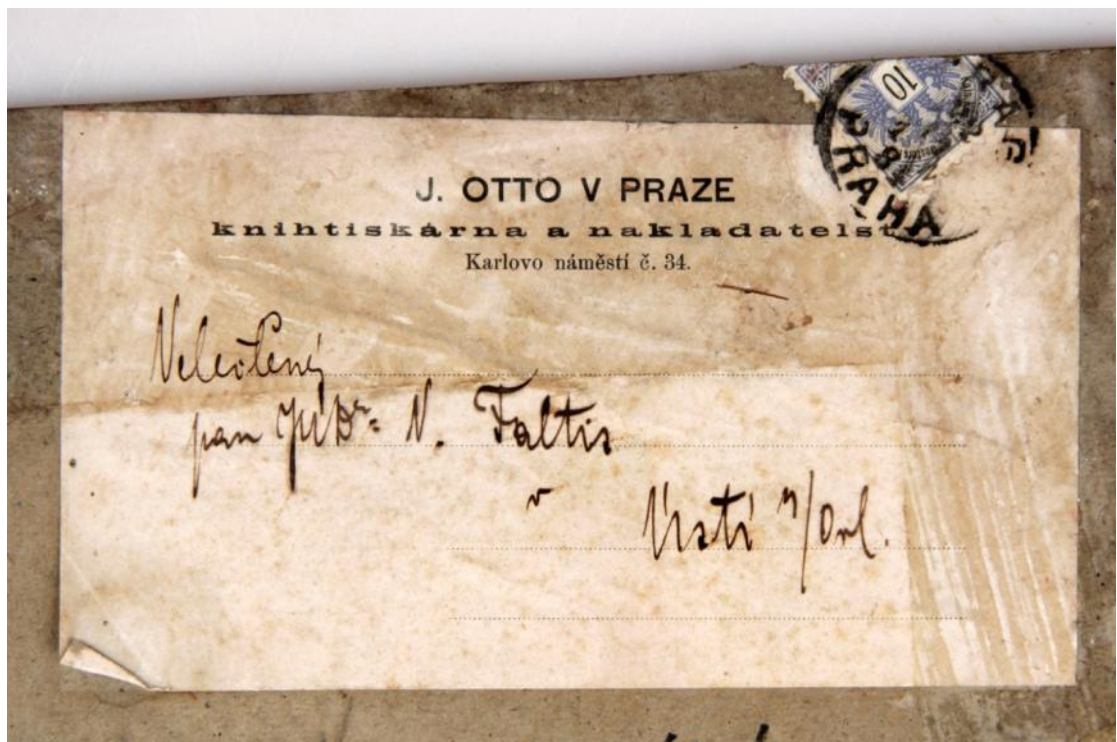 J. OTTO V PRAZE
knihtiskárna a nakladatelst
Karlovo náměstí č. 34.
10
PRAHA
Velectěný
pan JUDr N. Faltis
v Ústí n/Orl.